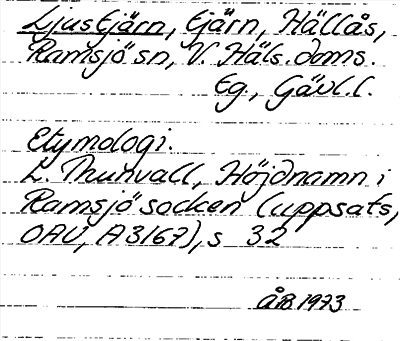 Ljustjärn, tjärn, Hällås,
Ramsjö sn, V. Häls. doms.
Eg., Gävl. l.
Etymologi.
L. Thunvall, Höjdnamn i
Ramsjö socken (uppsats,
OAU, A3167), s 32
ÅB. 1973